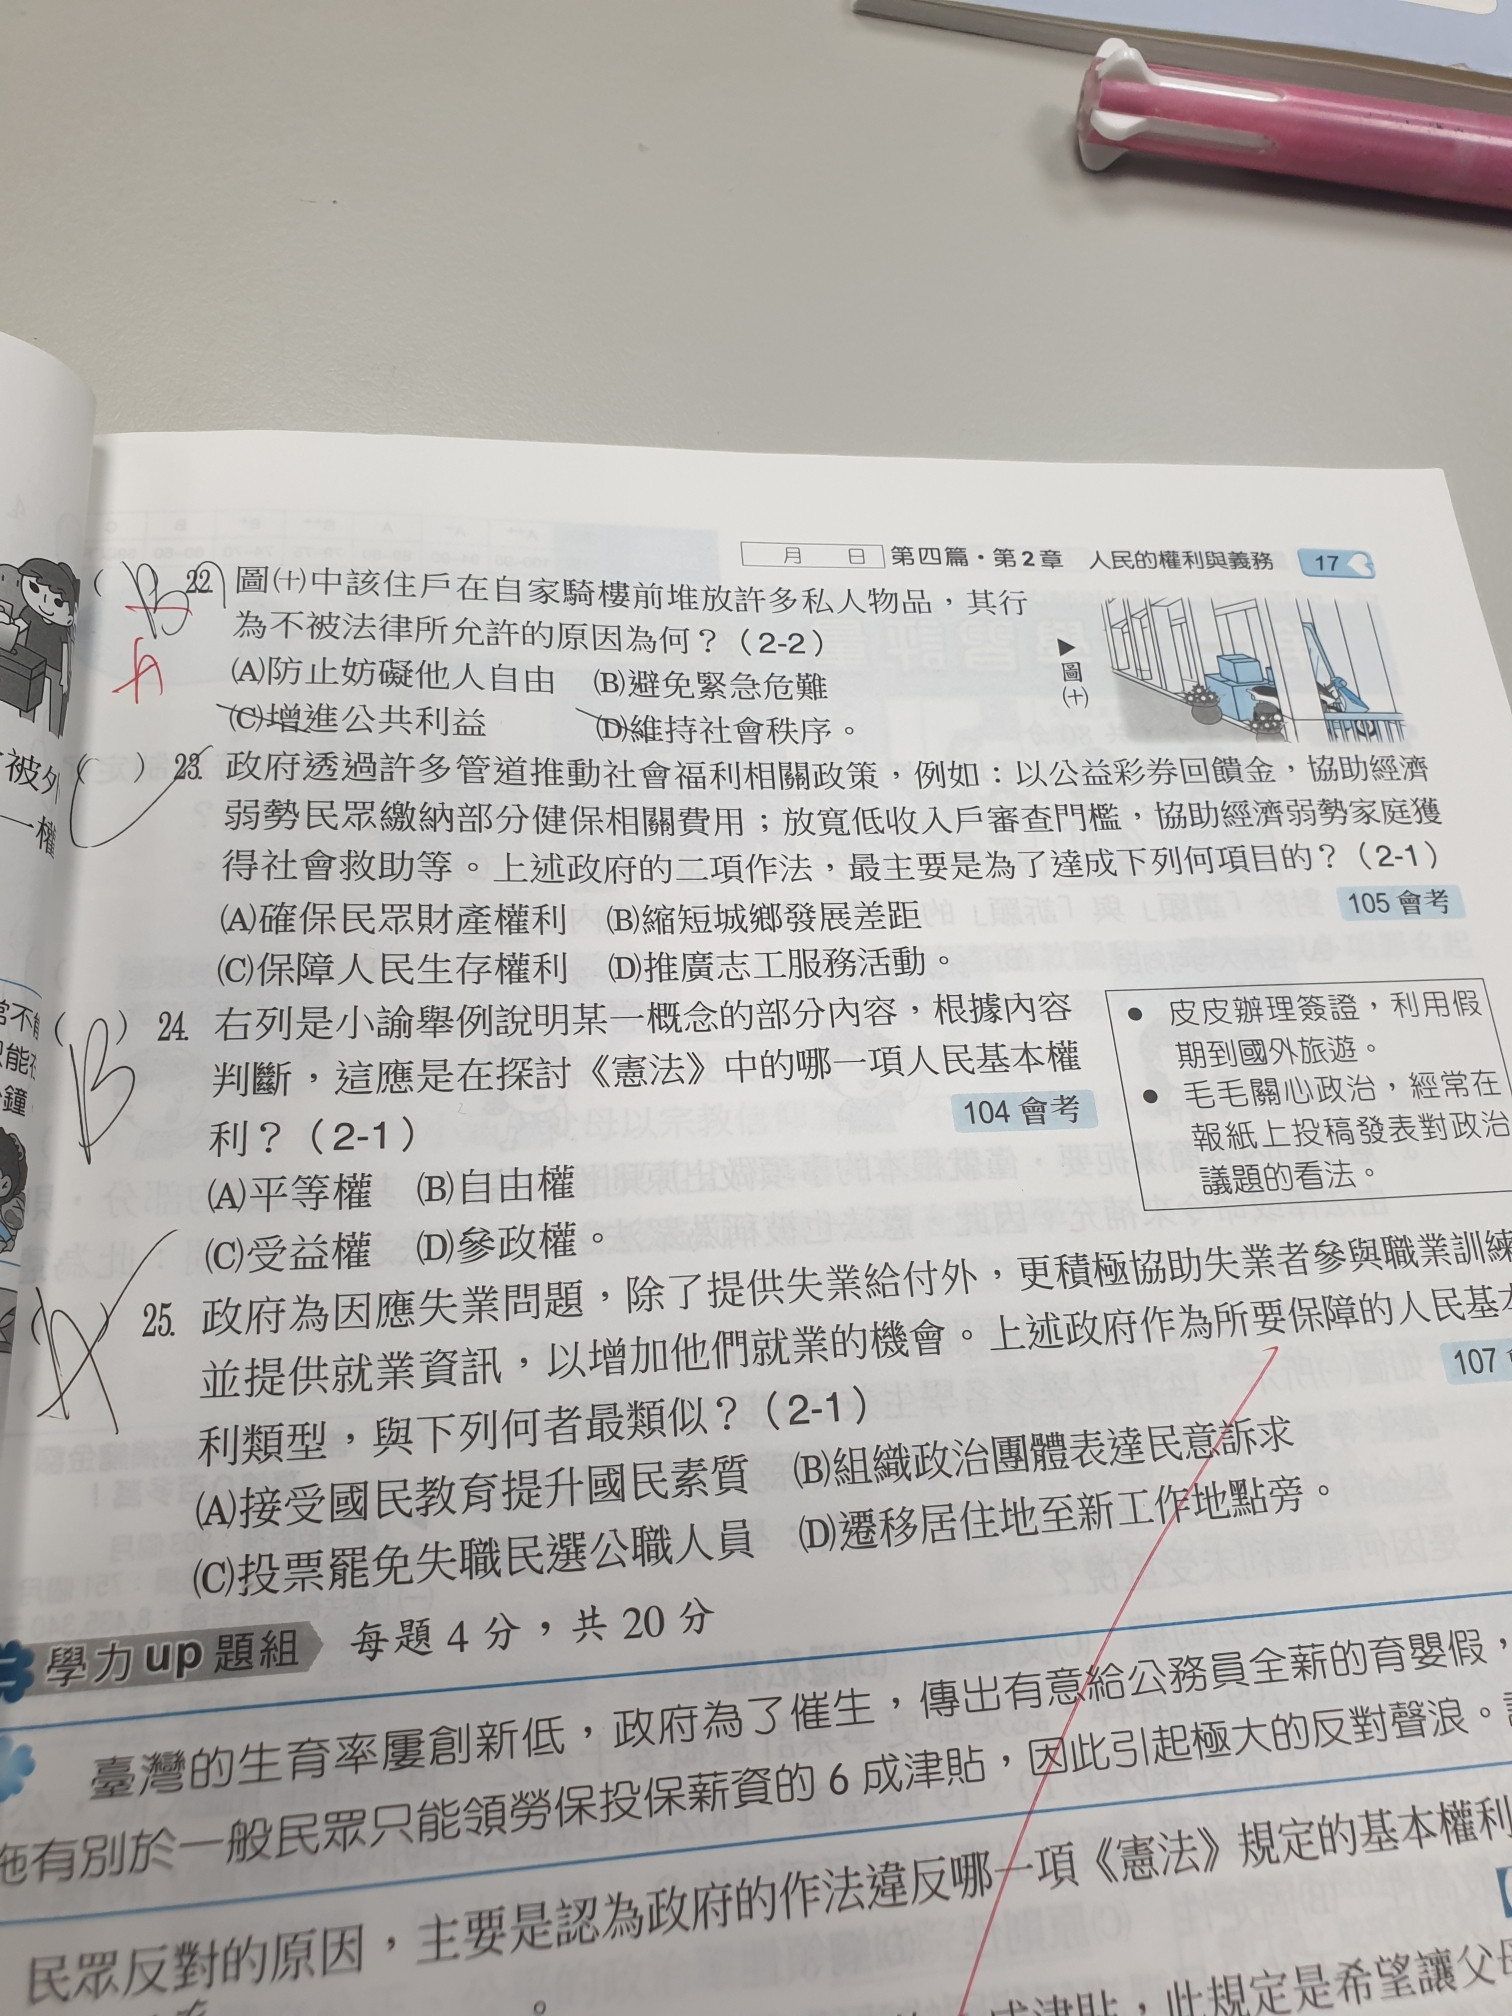 月 日 第四篇・第2章 人民的權利與義務 17
B 22. 圖㈩中該住戶在自家騎樓前堆放許多私人物品，其行
為不被法律所允許的原因為何？（2-2）
A
(A)防止妨礙他人自由 (B)避免緊急危難
(C)增進公共利益 (D)維持社會秩序。
▶圖㈩
(C) 23. 政府透過許多管道推動社會福利相關政策，例如：以公益彩券回饋金，協助經濟
弱勢民眾繳納部分健保相關費用；放寬低收入戶審查門檻，協助經濟弱勢家庭獲
得社會救助等。上述政府的二項作法，最主要是為了達成下列何項目的？（2-1）
105 會考
(A)確保民眾財產權利 (B)縮短城鄉發展差距
(C)保障人民生存權利 (D)推廣志工服務活動。
(B) 24. 右列是小諭舉例說明某一概念的部分內容，根據內容
判斷，這應是在探討《憲法》中的哪一項人民基本權
利？（2-1） 104 會考
(A)平等權 (B)自由權
(C)受益權 (D)參政權。
• 皮皮辦理簽證，利用假
期到國外旅遊。
• 毛毛關心政治，經常在
報紙上投稿發表對政治
議題的看法。
A 25. 政府為因應失業問題，除了提供失業給付外，更積極協助失業者參與職業訓練
並提供就業資訊，以增加他們就業的機會。上述政府作為所要保障的人民基本
利類型，與下列何者最類似？（2-1） 107
(A)接受國民教育提升國民素質 (B)組織政治團體表達民意訴求
(C)投票罷免失職民選公職人員 (D)遷移居住地至新工作地點旁。
學力up題組 每題 4 分，共 20 分
臺灣的生育率屢創新低，政府為了催生，傳出有意給公務員全薪的育嬰假，
施有別於一般民眾只能領勞保投保薪資的 6 成津貼，因此引起極大的反對聲浪。
民眾反對的原因，主要是認為政府的作法違反哪一項《憲法》規定的基本權利
成津貼，此規定是希望讓父母